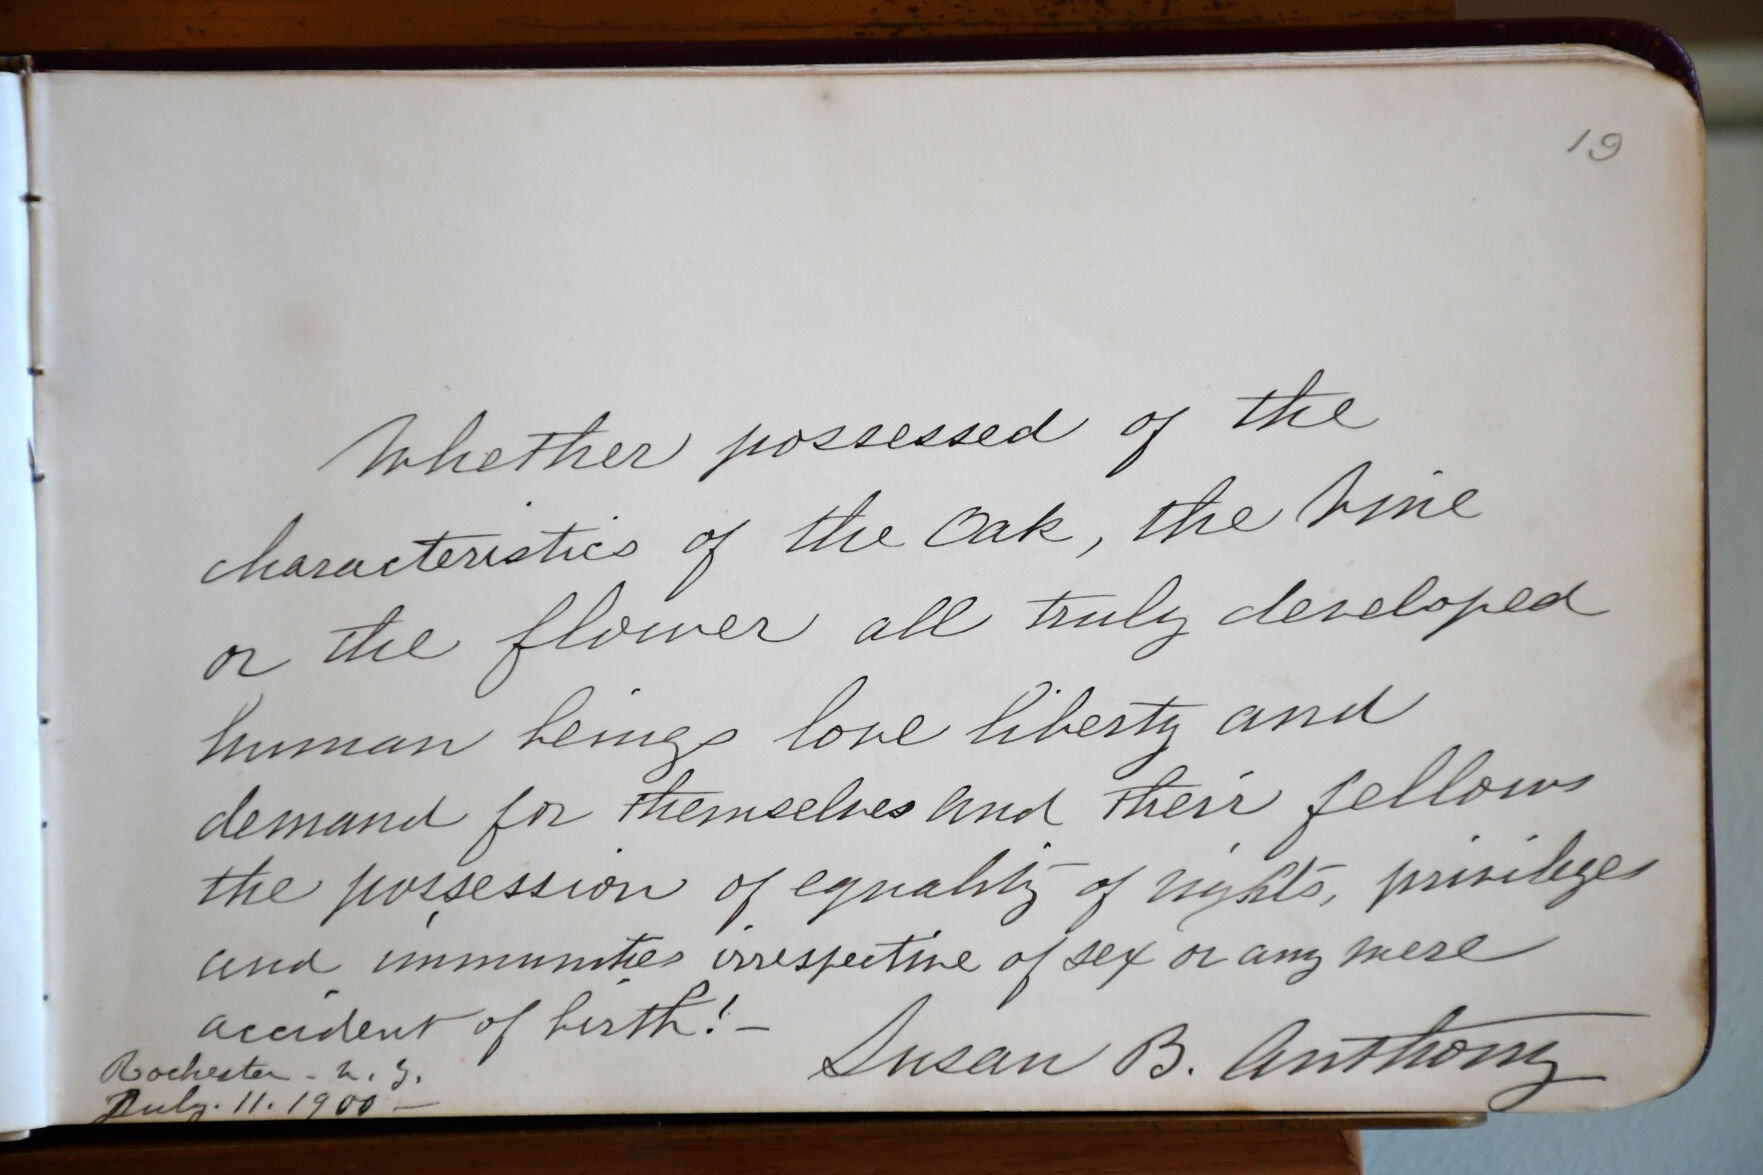 19
Whether possessed of the
characteristics of the Oak, the Vine
or the flower all truly developed
human beings love liberty and
demand for themselves and their fellows
the possession of equality of rights, privileges
and immunities irrespective of sex or any mere
accident of birth! —
Susan B. Anthony
Rochester - N. Y.
July. 11. 1900 —